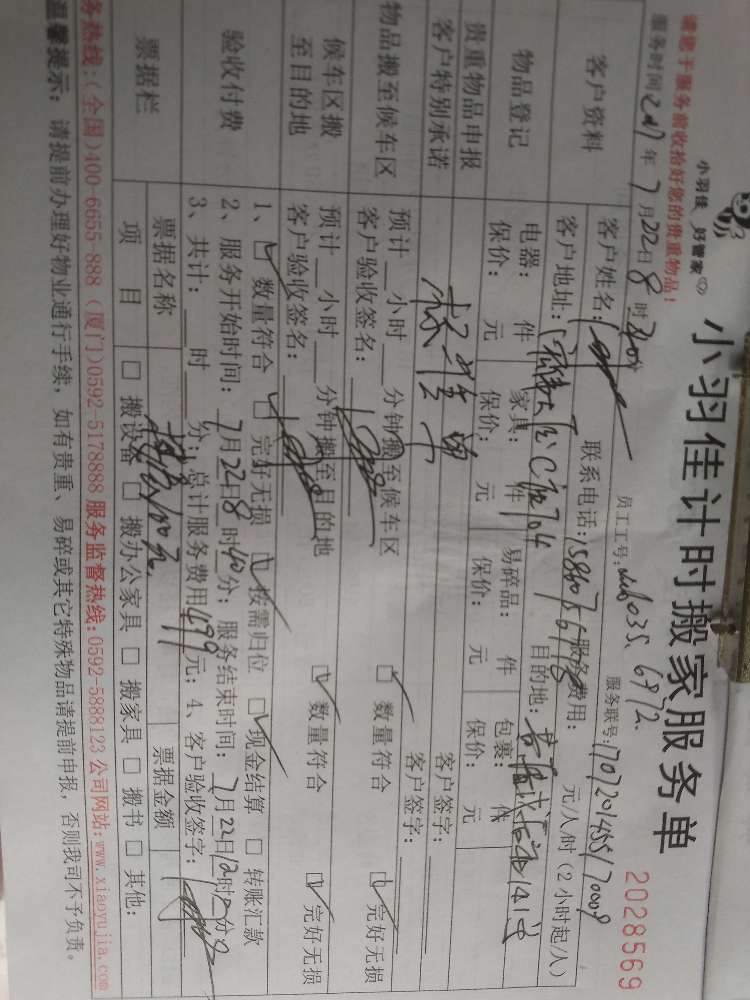 小羽佳 好管家
小羽佳计时搬家服务单
2028569
请您于服务前收拾好您的贵重物品!
员工工号: 035、6972.
服务联号:
服务时间 2017 年 7 月 22 日 8 时
客户资料
客户姓名: 联系电话: 服务费用: 元/人/时(2小时起/人)
客户地址: C 704 目的地:
物品登记
电器: 件 家具: 件 易碎品: 件 包裹: 件
保价: 元 保价: 元 保价: 元 保价: 元
贵重物品申报 客户签字:
客户特别承诺 客户签字:
物品搬至候车区
预计 小时 分钟搬至候车区
客户验收签名: □ 数量符合 □ 完好无损
候车区搬至目的地
预计 小时 分钟搬至目的地
客户验收签名: □ 数量符合 □ 完好无损
验收付费
1、□ 数量符合 □ 完好无损 □ 按需归位 □ 现金结算 □ 转账汇款
2、服务开始时间: 7 月 22 日 8 时 40 分; 服务结束时间: 7 月 22 日 12 时 分
3、共计: 时 分; 总计服务费用 499 元; 4、客户验收签字:
票据栏
票据名称 票据金额
项 目 □ 搬设备 □ 搬办公家具 □ 搬家具 □ 搬书 □ 其他:
务热线:(全国)400-6655-888 (厦门)0592-5178888 服务监督热线:0592-5888123 公司网站:www.xiaoyujia.com
温馨提示: 请提前办理好物业通行手续, 如有贵重、易碎或其它特殊物品请提前申报, 否则我司不予负责。